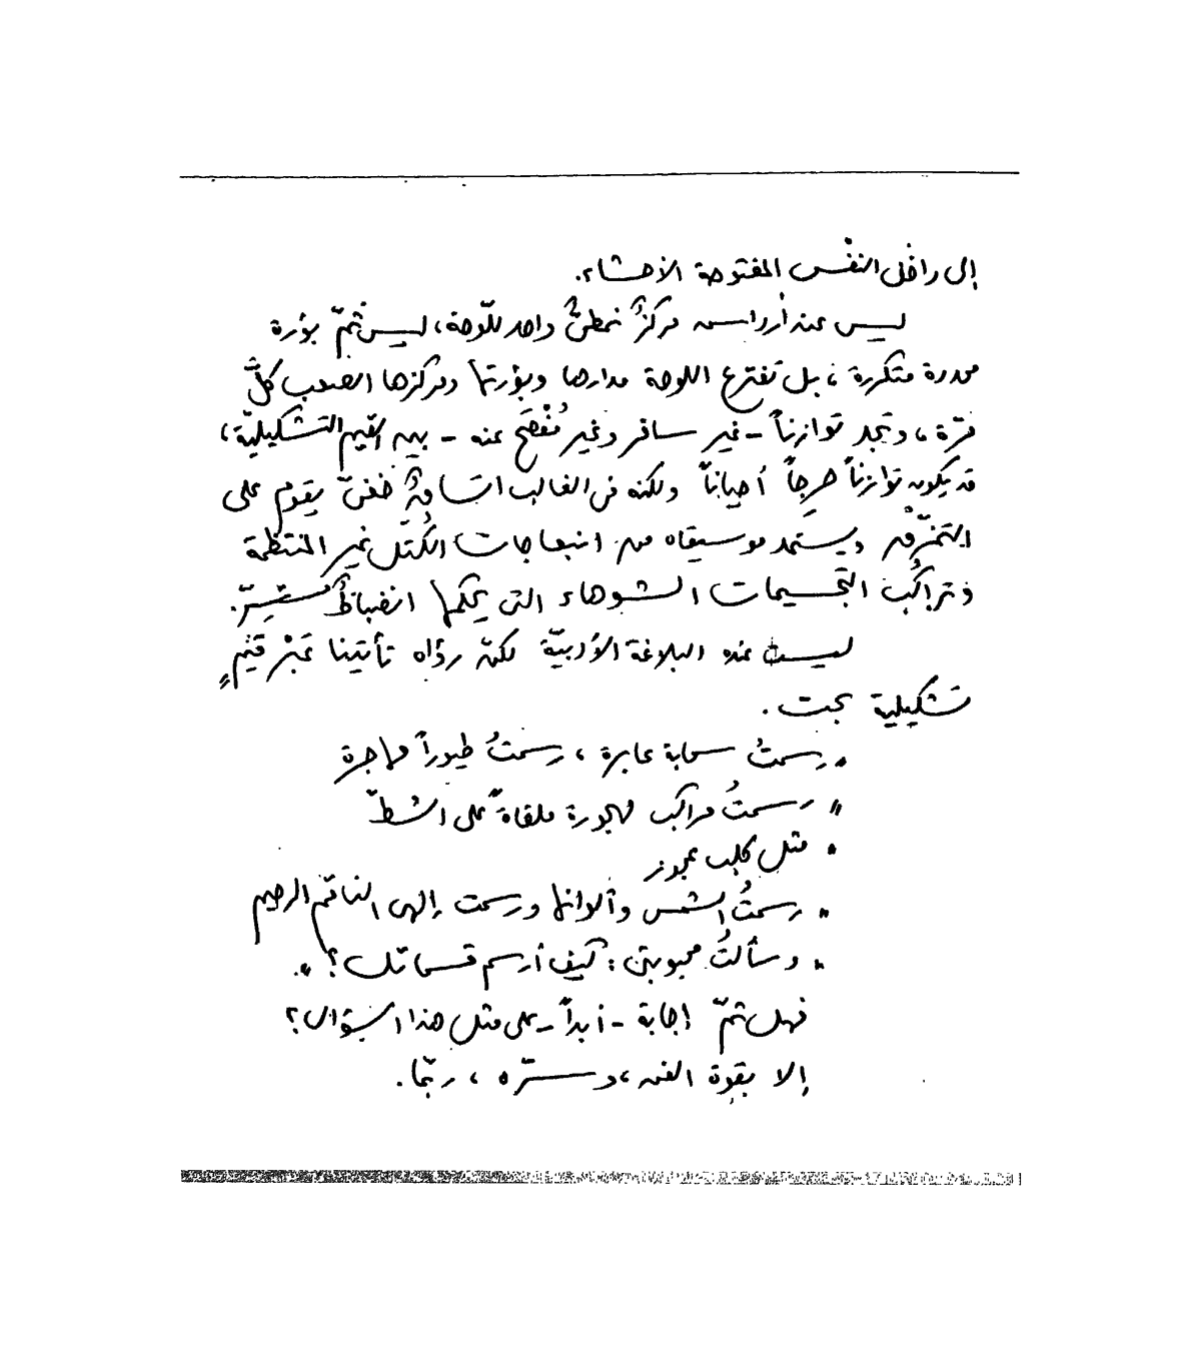 إلى داخل النفْس المفتوحة الأحشاء.
ليس عند أرداس مركزٌ نمطىٌّ واحد للّوحة، ليس ثَمّ بؤرة
محددة متكررة، بل تفترع اللوحة مدارها وبؤرتها ومركزها الصعب كلَّ
مرّة، وتجد توازناً - غير سافر وغير مُفْصَح عنه - بين القيم التشكيليّة،
قد يكون توازناً حرجاً أحياناً ولكنه فى الغالب اتساقٌ خفىّ يقوم على
التمزّق ويستمد موسيقاه من انبعاجات الكُتَل غير المنتظمة
وتراكُب التجسيمات الشوهاء التى يحكمها انضباطٌ مستَسِرّ.
ليست عنده البلاغة الأدبيّة لكنّ رؤاه تأتينا عَبْر قيَمٍ
تشكيلية بحت.
" رسمتُ سحابة عابرة، رسمتُ طيوراً مهاجرة
" رسمتُ مراكب مهجورة ملقاةً على الشطّ
" مثل كلب عجوز
" رسمتُ الشمس وألوانها ورسمت إلهى الناقم الرحيم
" وسألتُ محبوبتى: كيف أرسم قسماتك؟ ".
فهل ثمّ إجابة - أبداً - على مثل هذا السؤال؟
إلا بقوة الفن، وسرّه، ربّما.